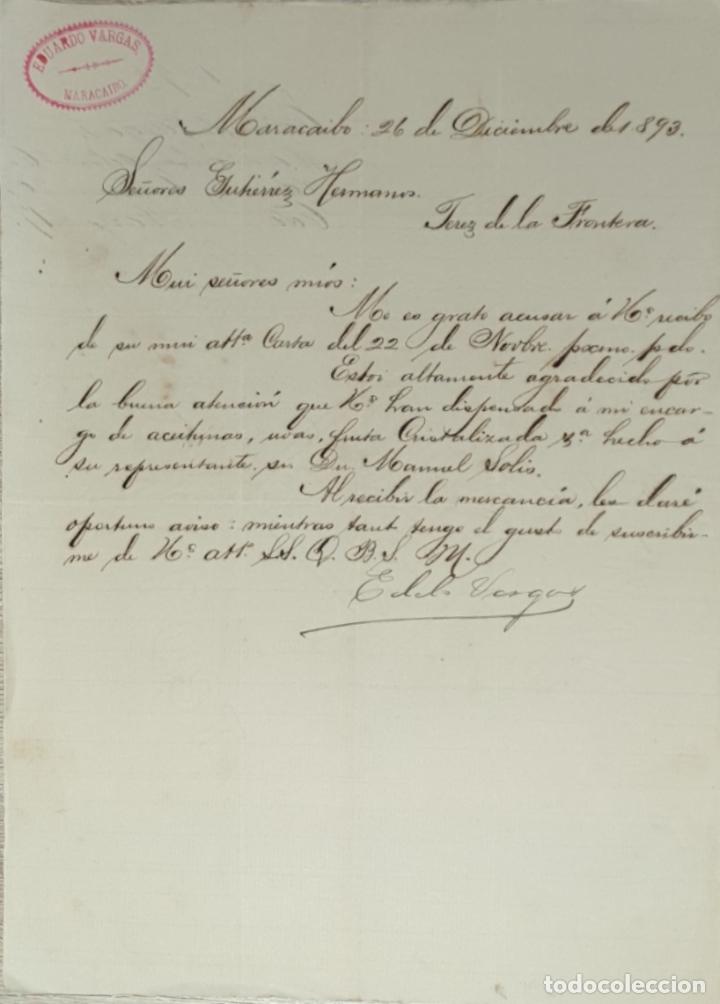 EDUARDO VARGAS.
MARACAIBO.
Maracaibo: 26 de Diciembre de 1893.
Señores Gutiérrez Hermanos.
Jerez de la Frontera.
Mui señores míos:
Me es grato acusar á Vs. recibo
de su mui attª Carta del 22 de Novbre. pxmo. pdo.
Estoi altamente agradecido por
la buena atención que Vs. han dispensado á mi encar-
go de aceitunas, uvas, fruta Cristalizada &ª hecho á
su representante, sr. Dn. Manuel Solis.
Al recibir la mercancía, les daré
oportuno aviso: mientras tant tengo el gusto de suscribir-
me de Vs. att. S.S. Q. B. S. M.
Eddo Vargas
todocoleccion.net